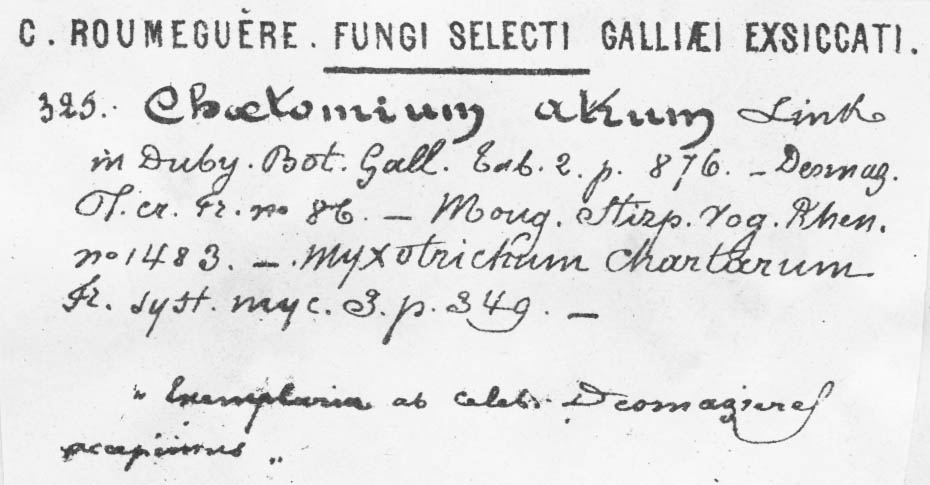 C. ROUMEGUÈRE. FUNGI SELECTI GALLIÆI EXSICCATI.
325. Chœtomium atrum Link
in Duby. Bot. Gall. Ed. 2. p. 876. – Desmaz.
Pl. cr. Fr. no 86. – Moug. Stirp. Vog. Rhen.
no 1483. – Myxotrichum chartarum
Fr. syst. myc. 3. p. 349. –
„ Exemplaria ab celeb. Desmazieres
accepimus „